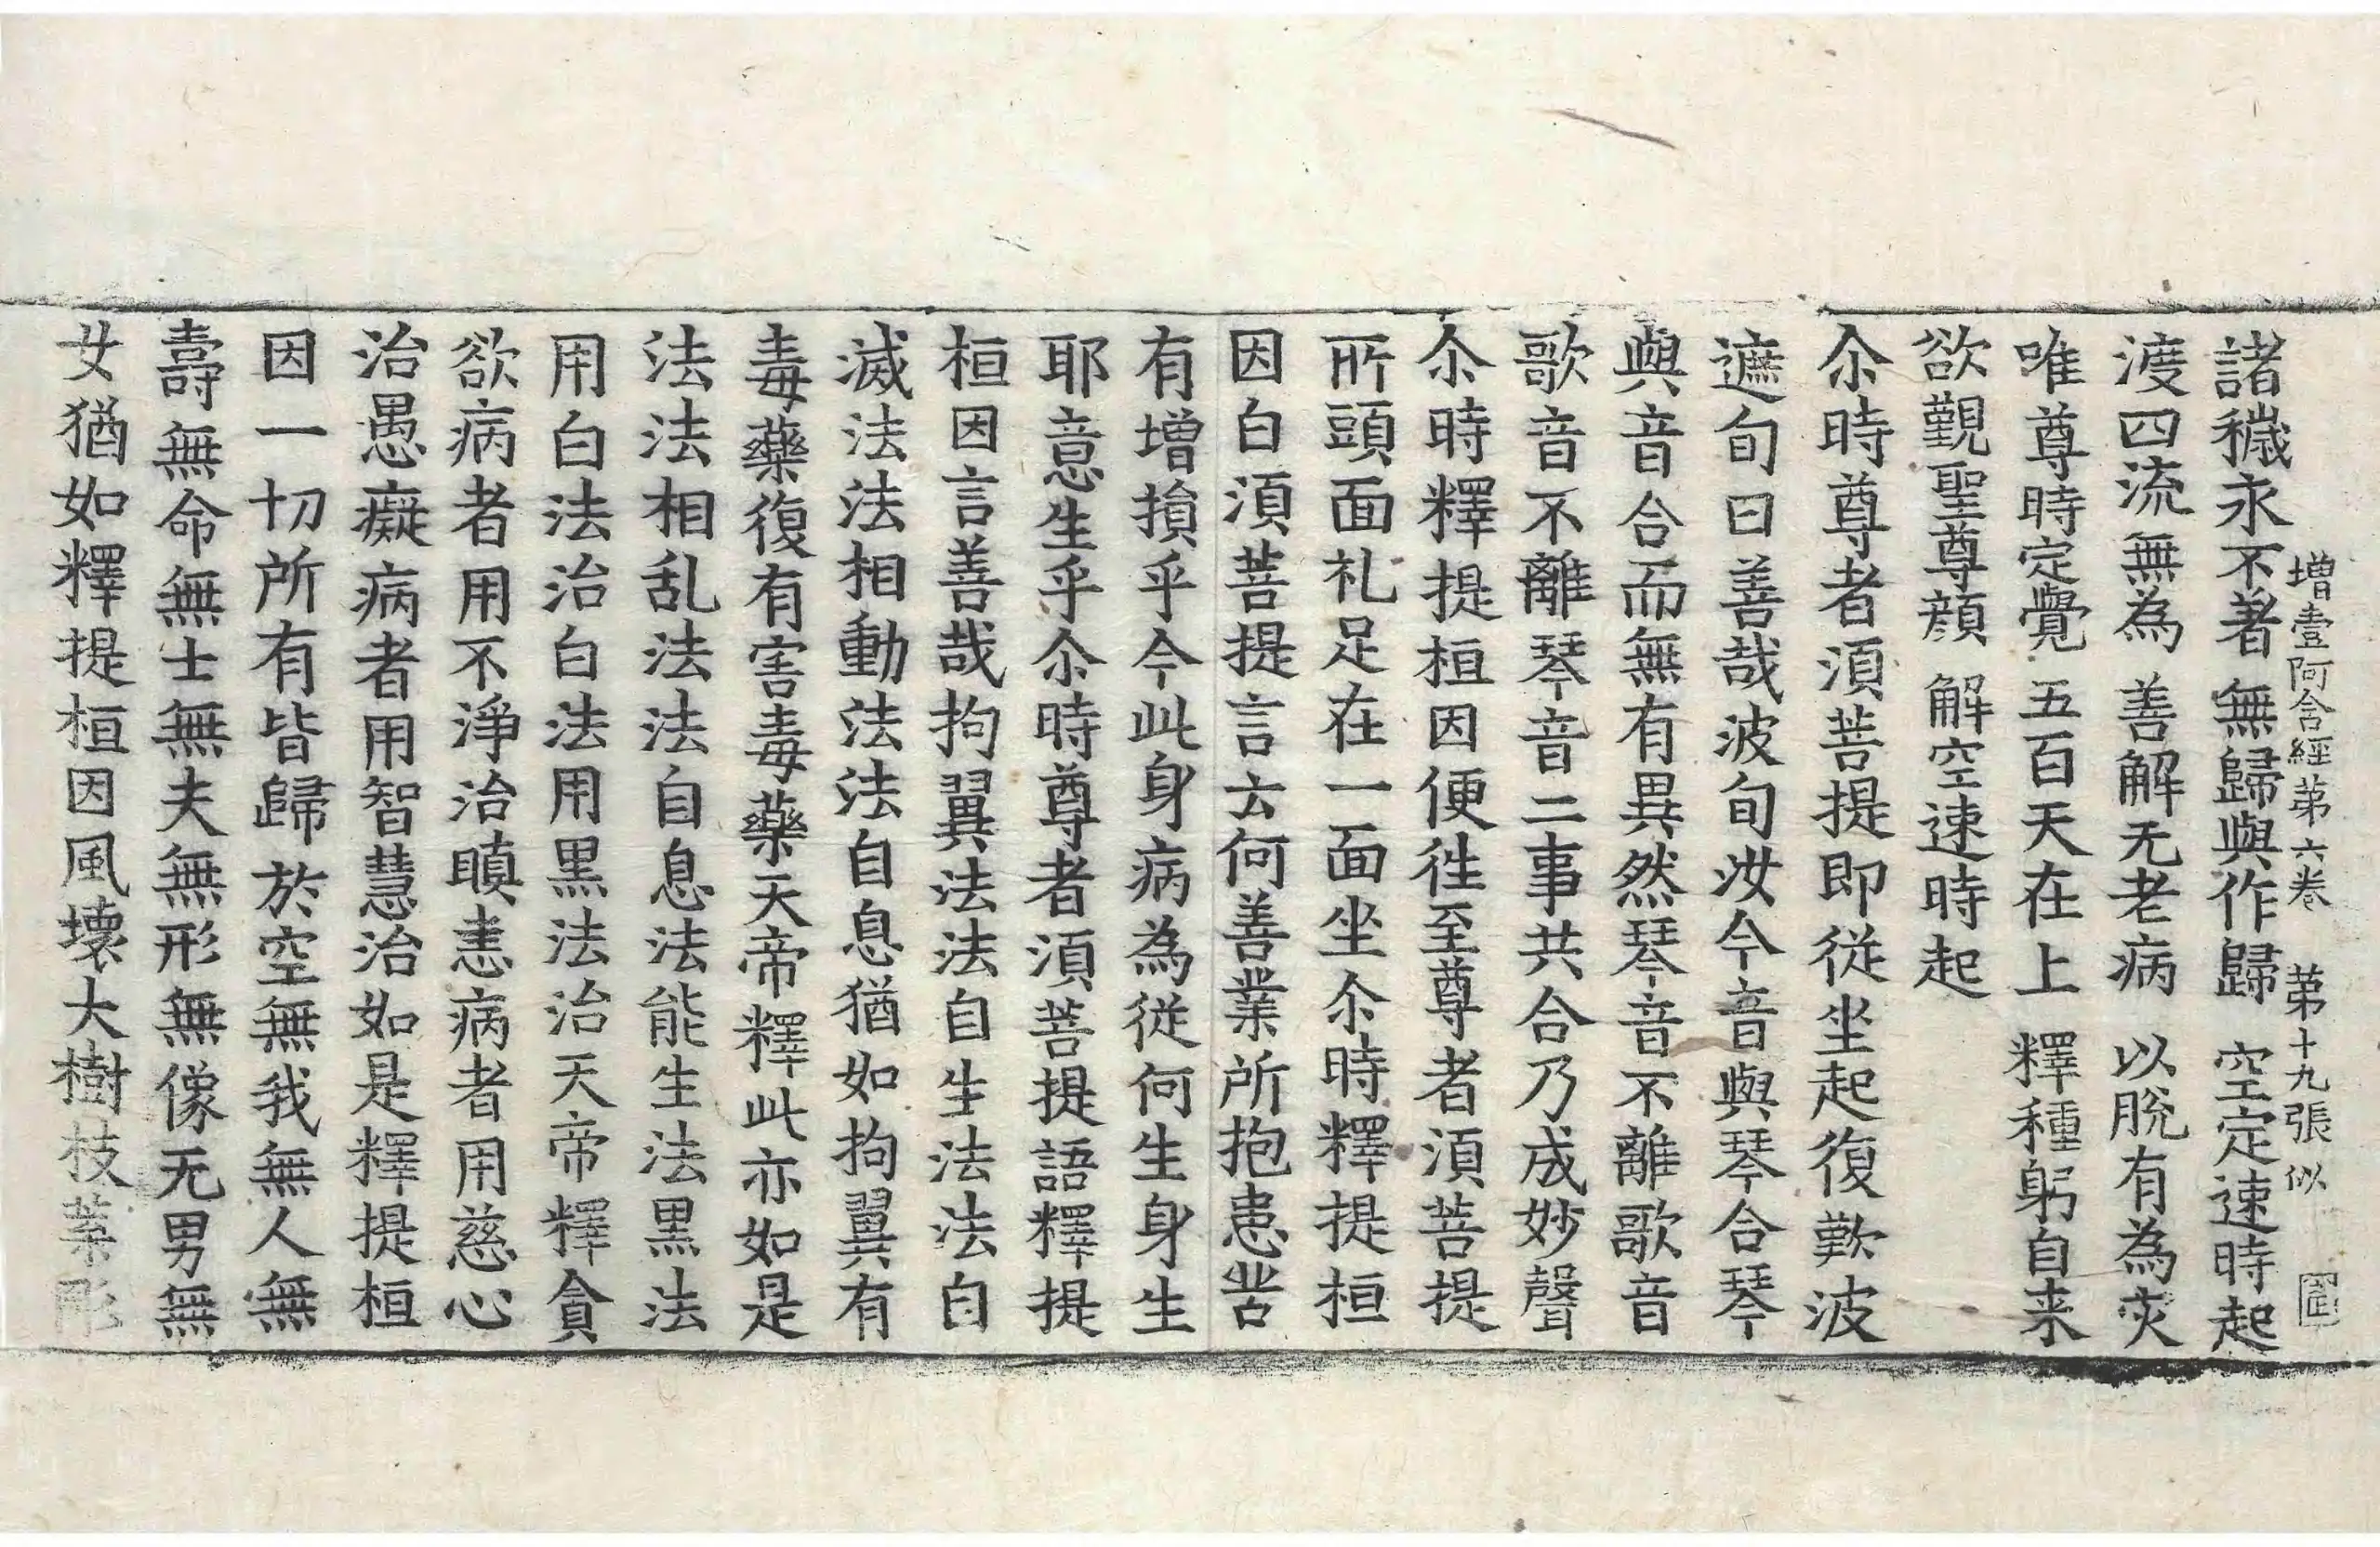 增壹阿含經第六卷 第十九張 似
諸穢永不著 無歸與作歸 空定速時起
渡四流無為 善解无老病 以脫有為灾
唯尊時定覺 五百天在上 釋種躬自来
欲覲聖尊顏 解空速時起
尒時尊者須菩提即從坐起復歎波
遮旬曰善哉波旬汝今音與琴合琴
與音合而無有異然琴音不離歌音
歌音不離琴音二事共合乃成妙聲
尒時釋提桓因便往至尊者須菩提
所頭面礼足在一面坐尒時釋提桓
因白須菩提言云何善業所抱患苦
有增損乎今此身病為從何生身生
耶意生乎尒時尊者須菩提語釋提
桓因言善哉拘翼法法自生法法自
滅法法相動法法自息猶如拘翼有
毒藥復有害毒藥天帝釋此亦如是
法法相乱法法自息法能生法黑法
用白法治白法用黑法治天帝釋貪
欲病者用不淨治瞋恚病者用慈心
治愚癡病者用智慧治如是釋提桓
因一切所有皆歸於空無我無人無
壽無命無士無夫無形無像无男無
女猶如釋提桓因風壞大樹枝葉彫